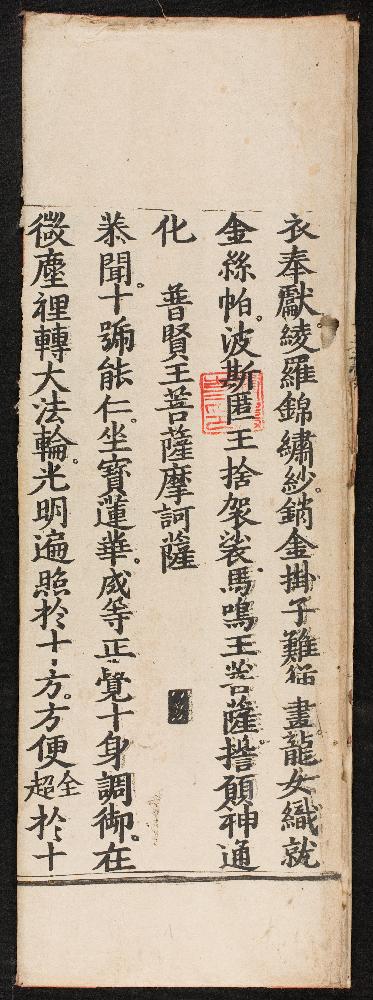 衣奉獻綾羅錦繡紗。銷金掛子難描畫。龍女織就
金絲帕。波斯匿王捨袈裟。馬鳴王菩薩。擔願神通
化　普賢王菩薩摩訶薩
恭聞。十號能仁。坐寳蓮華。成等正覺十身調御。在
微塵裡轉大法輪。光明遍照於十方。方便全超於十